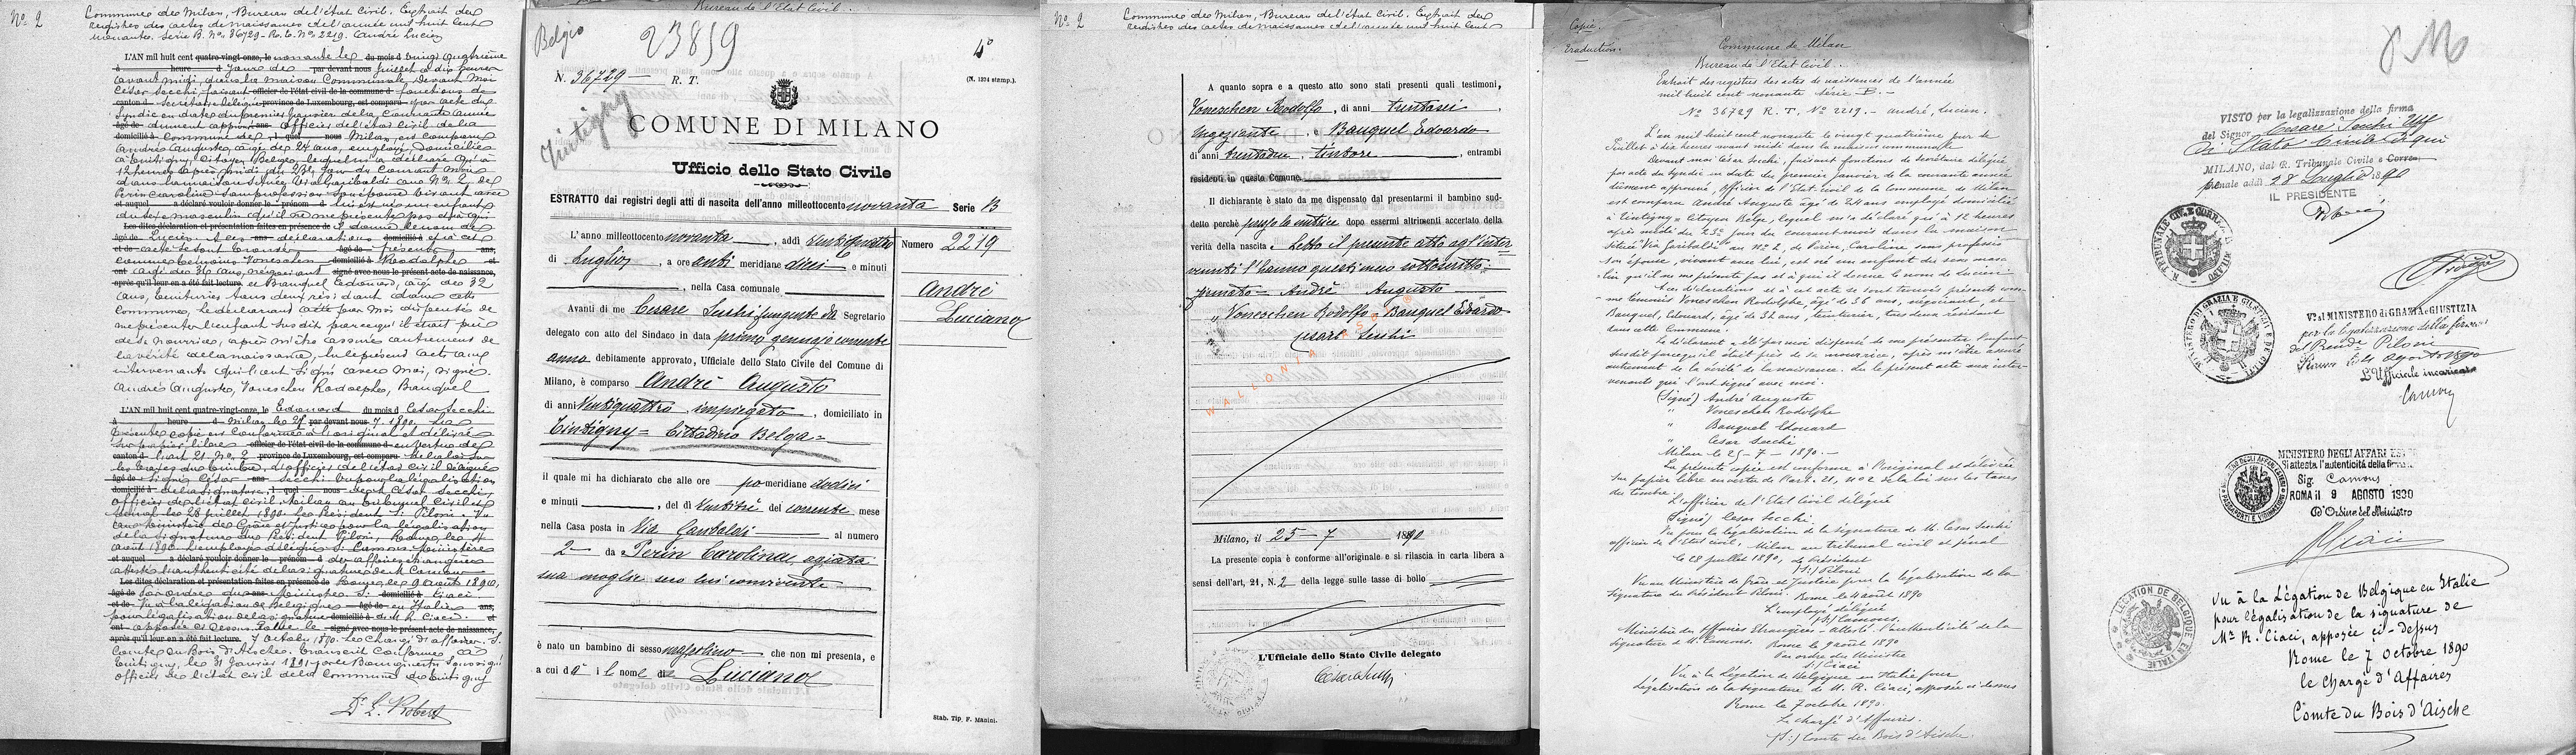 No 2
Commune de Milan, Bureau de l'état Civil. Extrait des
registres des actes de naissances de l'année mil huit cent
nonante. Série B. No 36729 - R. T. No 2219. André Lucien
L'AN mil huit cent quatre-vingt-onze, le nonante le du mois d vingt quatrième
à heure jour de par devant nous Juillet à dix heures
avant midi, dans la maison Communale, Devant moi
César Secchi, faisant officier de l'état civil de la commune d fonctions de
canton d Secrétaire délégué province de Luxembourg, est comparu par acte du
Syndic en date du premier Janvier de la courante année
âgé de dûment approuvé ans Officier de l'état Civil de la
domicilié à Commune de l quel nous Milan, est comparu
André Auguste, âgé de 24 ans, employé, domicilié
à Tintigny, Citoyen Belge, lequel m'a déclaré qu'à
12 heures après midi du 23e jour du courant mois
dans la maison située Via Garibaldi au No 2 de
Perin Caroline sans profession son épouse vivant avec
et auquel a déclaré vouloir donner le prénom d lui est né un enfant
du sexe masculin qu'il ne me présente pas et à qui
Les dites déclaration et présentation faites en présence de il donne le nom de
âgé de Lucien. A ces ans déclarations domicilié à et à cet
et de acte se sont trouvés âgé de présents ans,
comme témoins Voneschen domicilié à Rodolphe et
ont âgé de 36 ans, négociant signé avec nous le présent acte de naissance,
après qu'il leur en a été fait lecture. et Bauquel Edouard, âgé de 32
ans, teinturier tous deux résidant dans cette
Commune. Le déclarant a été par moi dispensé de
me présenter l'enfant susdit parce qu'il était près
de sa nourrice, après m'être assuré autrement de
la vérité de la naissance, Lu le présent acte aux
intervenants qui l'ont signé avec moi, signés.
André Auguste, Voneschen Rodolphe, Bauquel
L'AN mil huit cent quatre-vingt-onze, le Edouard du mois d César Secchi
à heure d Milan le 25 par devant nous 7. 1890. La
présente copie est conforme à l'original et délivrée
sur papier libre officier de l'état civil de la commune d en vertu de
canton d l'art 21. No 2 province de Luxembourg, est comparu de la loi sur
les taxes du timbre, L'officier de l'état civil délégué
âgé de signé César ans Secchi Vu pour la légalisation
domicilié à de la signature, l quel nous de M. César Secchi,
officier de l'état civil, Milan au tribunal Civil et
pénal le 28 Juillet 1890. Le Président S. Piloni. Vu
au Ministère de Grâce et Justice pour la légalisation
de la signature du Président Piloni, Rome le 4
août 1890. L'employé délégué S. Camous. Ministère
a déclaré vouloir donner le prénom d des affaires étrangères
atteste l'authenticité de la signature de M. Camous
Les dites déclaration et présentation faites en présence de Rome, le 9 août 1890,
âgé de Par ordre du ans Ministre S. domicilié à Ciaci.
et de Vu à la légation de Belgique âgé de en Italie ans,
pour légalisation de la signature domicilié à de M. R. Ciaci. et
ont apposée ci-dessus. Rome le signé avec nous le présent acte de naissance,
après qu'il leur en a été fait lecture. 7 octobre 1890. Le Chargé d'affaires. S.
Comte du Bois d'Aische. Transcrit conforme à
Tintigny, le 31 Janvier 1891 par le Bourgmestre soussigné
officier de l'état civil de la Commune de Tintigny
Dr L. Robert
Bureau de l'Etat Civil.
Belgio
23859
4°
N. 36729 R. T.
(N. 1224 stamp.).
Tintigny
COMUNE DI MILANO
Ufficio dello Stato Civile
ESTRATTO dai registri degli atti di nascita dell'anno milleottocento novanta Serie B
L'anno milleottocento novanta, addì ventiquattro
Numero 2219
di Luglio, a ore anti meridiane dieci e minuti
, nella Casa comunale
Andrè
Luciano
Avanti di me Cesare Secchi fungente da Segretario
delegato con atto del Sindaco in data primo gennajo corrente
anno debitamente approvato, Ufficiale dello Stato Civile del Comune di
Milano, è comparso Andrè Augusto
di anni ventiquattro, impiegato, domiciliato in
Tintigny = Cittadino Belga =
il quale mi ha dichiarato che alle ore po-meridiane dodici
e minuti , del dì ventitrè del corrente mese
nella Casa posta in Via Garibaldi al numero
2 da Perin Carolina, agiata
sua moglie seco lui convivente
è nato un bambino di sesso mascolino che non mi presenta, e
a cui dà i l nome di Luciano
Stab. Tip. F. Manini.
No 2
Commune de Milan, Bureau de l'état Civil. Extrait des
registres des actes de naissances de l'année mil huit cent
A quanto sopra e a questo atto sono stati presenti quali testimoni,
Voneschen Rodolfo, di anni trentasei,
negoziante, e Bauquel Edoardo
di anni trentadue, tintore, entrambi
residenti in questo Comune.
Il dichiarante è stato da me dispensato dal presentarmi il bambino sud-
detto perchè presso la nutrice dopo essermi altrimenti accertato della
verità della nascita e letto il presente atto agl'inter
venuti l'hanno questi meco sottoscritto =
firmato = Andrè Augusto
" Voneschen Rodolfo - Bauquel Edoardo
Cesare Secchi
Milano, il 25 - 7 1890
La presente copia è conforme all'originale e si rilascia in carta libera a
sensi dell'art. 21, N. 2 della legge sulle tasse di bollo
L'Ufficiale dello Stato Civile delegato
Cesare Secchi
Copie.
Traduction.
Commune de Milan
Bureau de l'Etat Civil.
Extrait des registres des actes de naissances de l'année
mil huit cent nonante Série B. -
No 36729 R. T. No 2219. - André, Lucien.
L'an mil huit cent nonante le vingt quatrième jour de
Juillet à dix heures avant midi dans la maison communale
Devant moi César Secchi, faisant fonctions de Secrétaire délégué
par acte du Syndic en date du premier janvier de la courante année
dûment approuvé, officier de l'Etat civil de la Commune de Milan
est comparu André Auguste âgé de 24 ans employé domicilié
à Tintigny Citoyen Belge, lequel m'a déclaré qu'à 12 heures
après midi du 23e jour du courant mois dans la maison
située Via Garibaldi au No 2, de Perin, Caroline sans profession
son épouse, vivant avec lui, est né un enfant du sexe mascu-
lin qu'il ne me présente pas et à qui il donne le nom de Lucien.
A ces déclarations et à cet acte se sont trouvés présents com-
me témoins Voneschen Rodolphe, âgé de 36 ans, négociant, et
Bauquel, Edouard, âgé de 32 ans, teinturier, tous deux résidant
dans cette Commune.
Le déclarant a été par moi dispensé de me présenter l'enfant
susdit parce qu'il était près de sa nourrice, après m'être assuré
autrement de la vérité de la naissance. Lu le présent acte aux inter-
venants qui l'ont signé avec moi.
(Signé) André Auguste
" Voneschen Rodolphe
" Bauquel Edouard
" César Secchi
Milan le 25 - 7 - 1890. -
La présente copie est conforme à l'original et délivrée
sur papier libre en vertu de l'art. 21, No 2 de la loi sur les taxes
du timbre.
L'officier de l'Etat Civil délégué
(Signé) César Secchi.
Vu pour la légalisation de la signature de M. César Secchi
officier de l'Etat civil, Milan au tribunal civil et pénal
le 28 juillet 1890, le Président
(S.) Piloni
Vu au Ministère de Grâce et Justice pour la légalisation de la
signature du Président Piloni. Rome le 4 août 1890
L'employé délégué
(S.) Camous.
Ministère des Affaires Etrangères - atteste l'authenticité de la
signature de M. Camous. Rome le 9 août 1890
Par ordre du Ministre
(S.) Ciaci
Vu à la Légation de Belgique en Italie pour
légalisation de la signature de M. R. Ciaci, apposée ci-dessus
Rome le 7 octobre 1890.
Le chargé d'Affaires.
(S.) Comte du Bois d'Aische.
VISTO per la legalizzazione della firma
del Signor Cesare Secchi Uff
di Stato Civile di qui
MILANO, dal R. Tribunale Civile e Correz.
penale addì 28 Luglio 1890
IL PRESIDENTE
R. TRIBUNALE CIV. E CORREZ. MILANO
Vo al MINISTERO di GRAZIA e GIUSTIZIA
per la legalizzazione della firma
del Presid. Piloni
Roma li 4 agosto 1890
L'Ufficiale incaricato
Camous
MINISTERO DI GRAZIA E GIUSTIZIA E DE CULTI
MINISTERO DEGLI AFFARI ESTERI
Si attesta l'autenticità della firma
Sig. Camous
ROMA il 9 AGOSTO 1890
d'Ordine del Ministro
Vu à la Légation de Belgique en Italie
pour légalisation de la signature de
Mr R. Ciaci, apposée ci-dessus
Rome le 7 Octobre 1890
le Chargé d'Affaires
Comte du Bois d'Aische
LEGATION DE BELGIQUE EN ITALIE